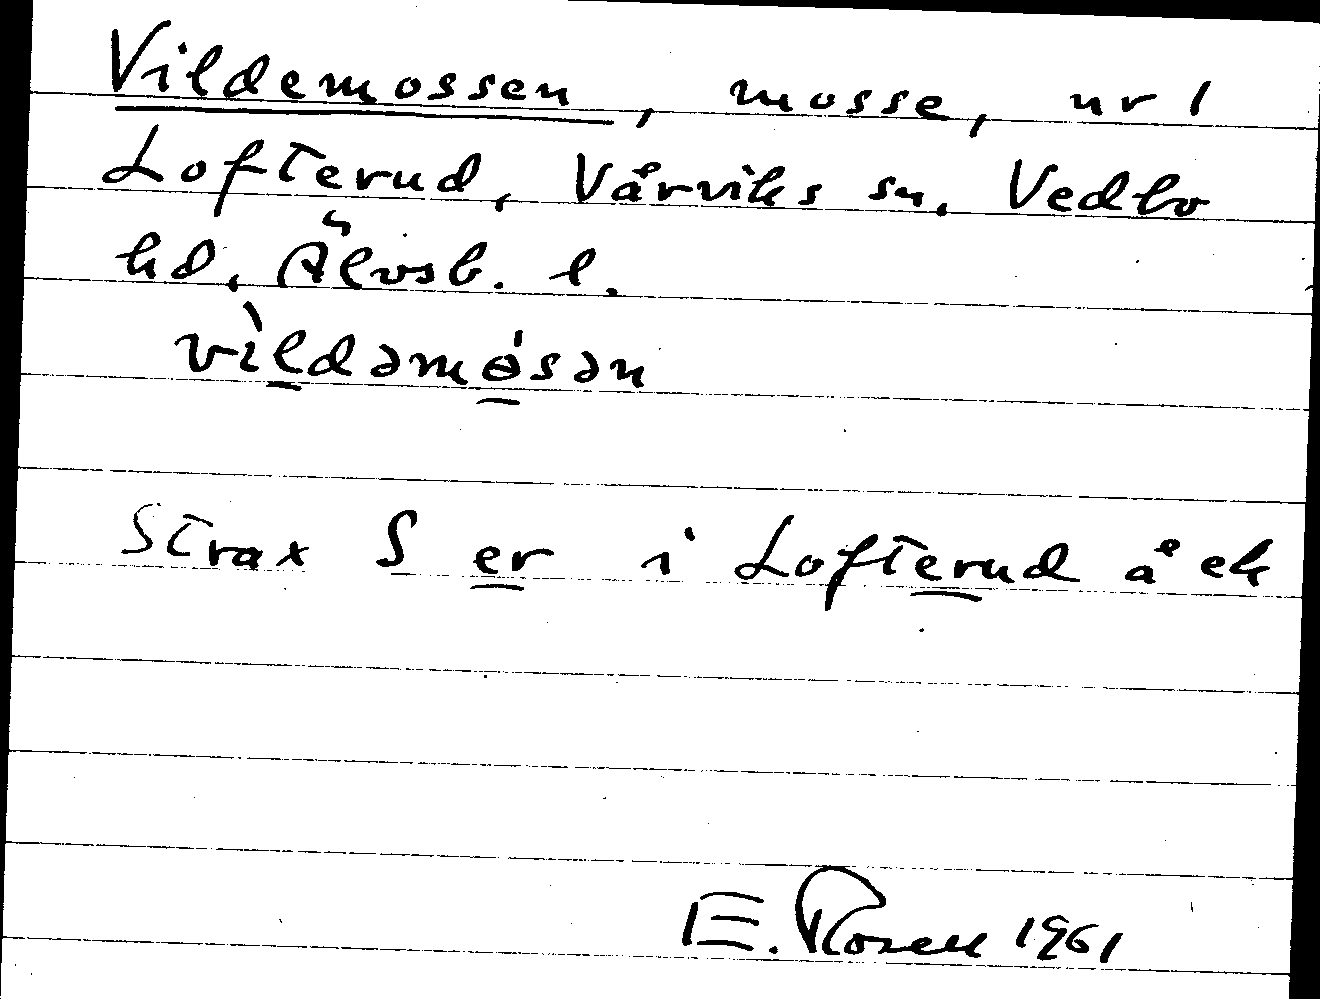 Vildemossen, mosse, nr 1
Lofterud, Vårviks sn. Vedbo
hd. Älvsb. l.
vìldəmɵ́sən
Strax S er i Lofterud å ek
E. Rosell 1961